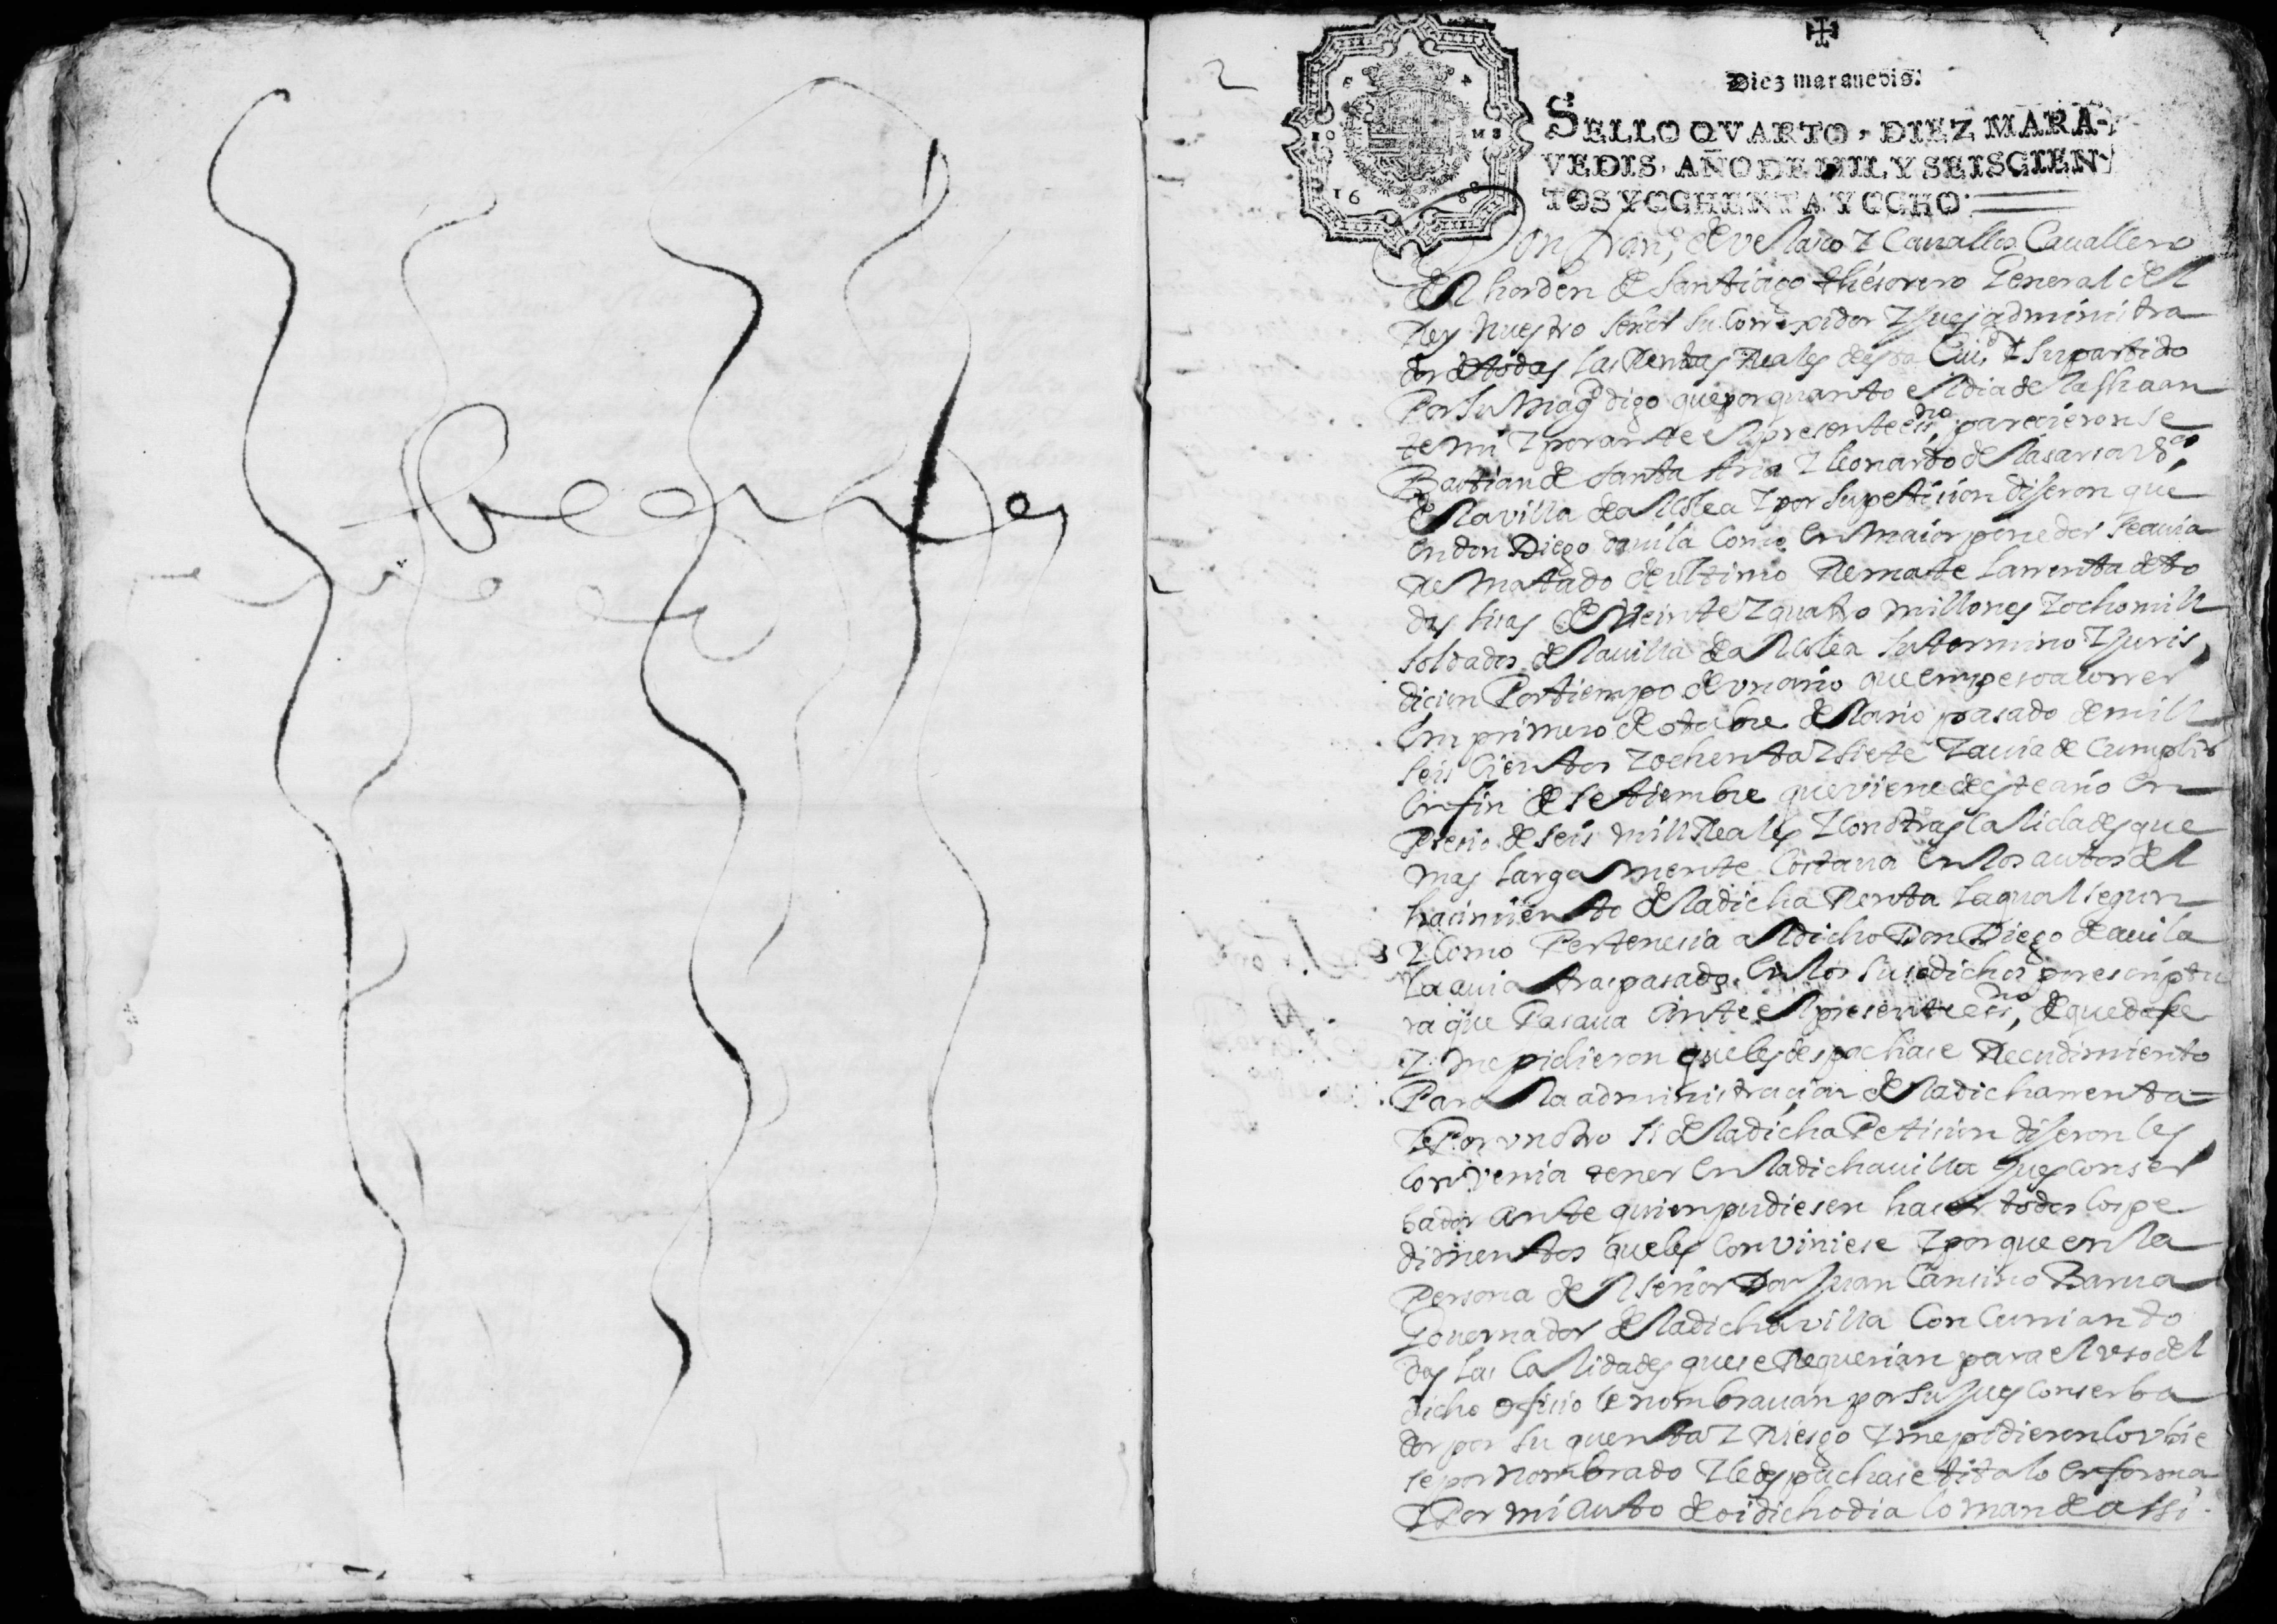 2
Diez marauedis.
SELLO QVARTO, DIEZ MARA-
VEDIS, AÑO DE MIL Y SEISCIEN-
TOS Y OCHENTA Y OCHO.
Don Franco, de Velasco Y Cauallos Cauallero
del horden de Santiago thesorero General del
Rey nuestro señor su Correxidor Y Juez administra
dor de todas las Rentas Reales desta Ciud. Y su partido
Por su Magd digo que por quanto el dia de la fha an
te mi Y por ante el presente essno, parecieron se
Bastian de Santa Ana Y Leonardo de vos,
de la villa de Y por su peticion dijeron que
en don Diego dauila Como en maior ponedor se auia
Rematado de ultimo Remate la rrenta de to
das sisas de Veinte Y quatro millones Y ocho mill
soldados de la uilla de su termino Y juris
dicion Por tiempo de un año que empeso a correr
en primero de otubre del año pasado de mill
seis cientos Y ochenta Y siete Y auia de Cumplir
en fin de setiembre que viene deste año en
Presio de seis mill Reales Y con otras Calidades que
mas largamente Costaua en los autos del
hacimiento de la dicha Renta la qual segun
Y Como Pertenesia al dicho Don Diego de auila
la auia traspasado en los susodichos por escriptu
ra que Pasaua Ante el presente essno, de que da fe
Y me pidieron que les despachase Recudimiento
Para la administracion de la dicha rrenta =
Y Por un otro si de la dicha Peticion dijeron les
Convenia tener en la dicha uilla Juez Conser
bador ante quien pudiesen haser todos los pe
dimentos que les Conviniese Y porque en la
Persona del señor Don Juan Cansino Barua
Gouernador de la dicha villa Concurrian to
das las Calidades que se Requerian para el uso del
dicho ofisio le nombrauan por su Juez Conserba
dor por su quenta Y Riesgo Y me pidieron lo ubie
se por nombrado Y le despachase titulo en forma
Y Por mi auto de oi dicho dia lo mande assi